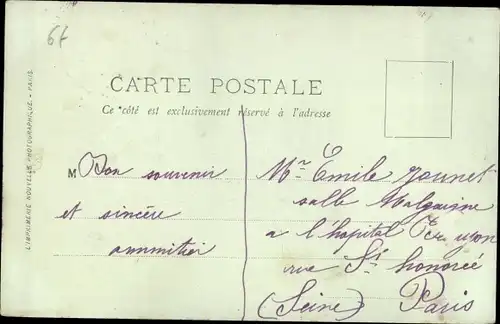 67
CARTE POSTALE
Ce côté est exclusivement réservé à l'adresse
L'IMPRIMERIE NOUVELLE PHOTOGRAPHIQUE. - PARIS
M Bon souvenir
et sincère
ammitier
Mr Emile Jounet
salle Malgaigne
a l'hopital
rue St honoré
(Seine) Paris